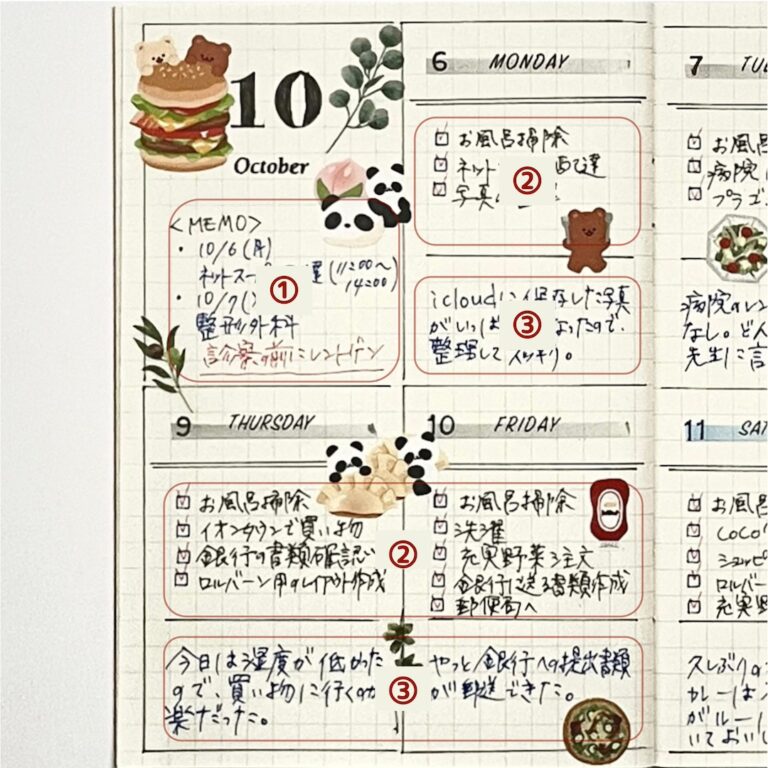 10
October
<MEMO>
・ 10/6 (月)
ネットスー ① 達 (11:00〜
14:00)
・ 10/7 (
整形外科
診察の前にレントゲン
6 MONDAY
お風呂掃除
ネット ② 達
写真
icloudに保存した写真
がいっぱ ③ なったので、
整理してスッキリ。
7 TU
お風呂
病院
プラゴ
病院のレン
なし。どん
先生に言
9 THURSDAY
お風呂掃除
イオンタウンで買い物
銀行の書類確認
②
ロルバーン用のレイアウト作成
今日は湿度が低かった
ので、買い物に行くのが
③
楽だった。
10 FRIDAY
お風呂掃除
洗濯
充実野菜注文
銀行に送る書類作成
郵便局へ
やっと銀行への提出書類
が郵送できた。
11 SAT
お風呂
COCO
ショッピ
ロルバー
充実野
久しぶりの
カレーは
がルー
いておいし